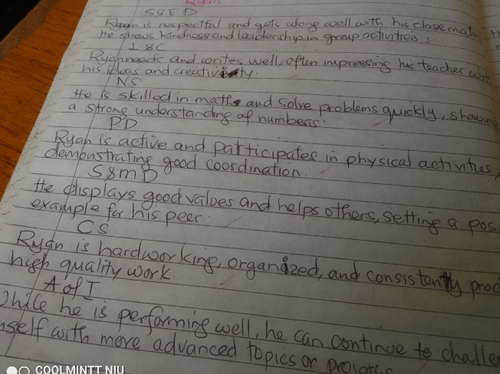 Ryan
S&ED
Ryan is respectful and gets along well with his close mate
He shows kindness and leadership in group activities.
L&C
Ryan reads and writes well, often impressing his teacher with
his ideas and creativity.
NS
He is skilled in maths and solve problems quickly, showing
a strong understanding of numbers.
PD
Ryan is active and participates in physical activities,
demonstrating good coordination.
S&MD
He displays good values and helps others, setting a pos
example for his peer.
CS
Ryan is hardworking, organized, and consistently prod
high quality work.
A of I
While he is performing well, he can continue to challen
mself with more advanced topics or projects.
COOLMINTT NIU